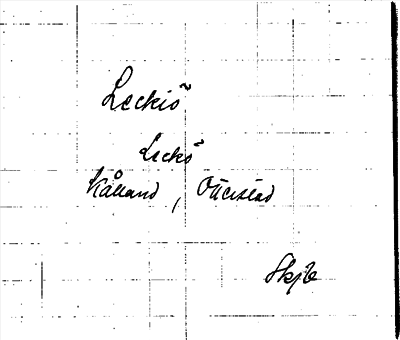 Leckiö
Leckö
Kålland, Otterstad